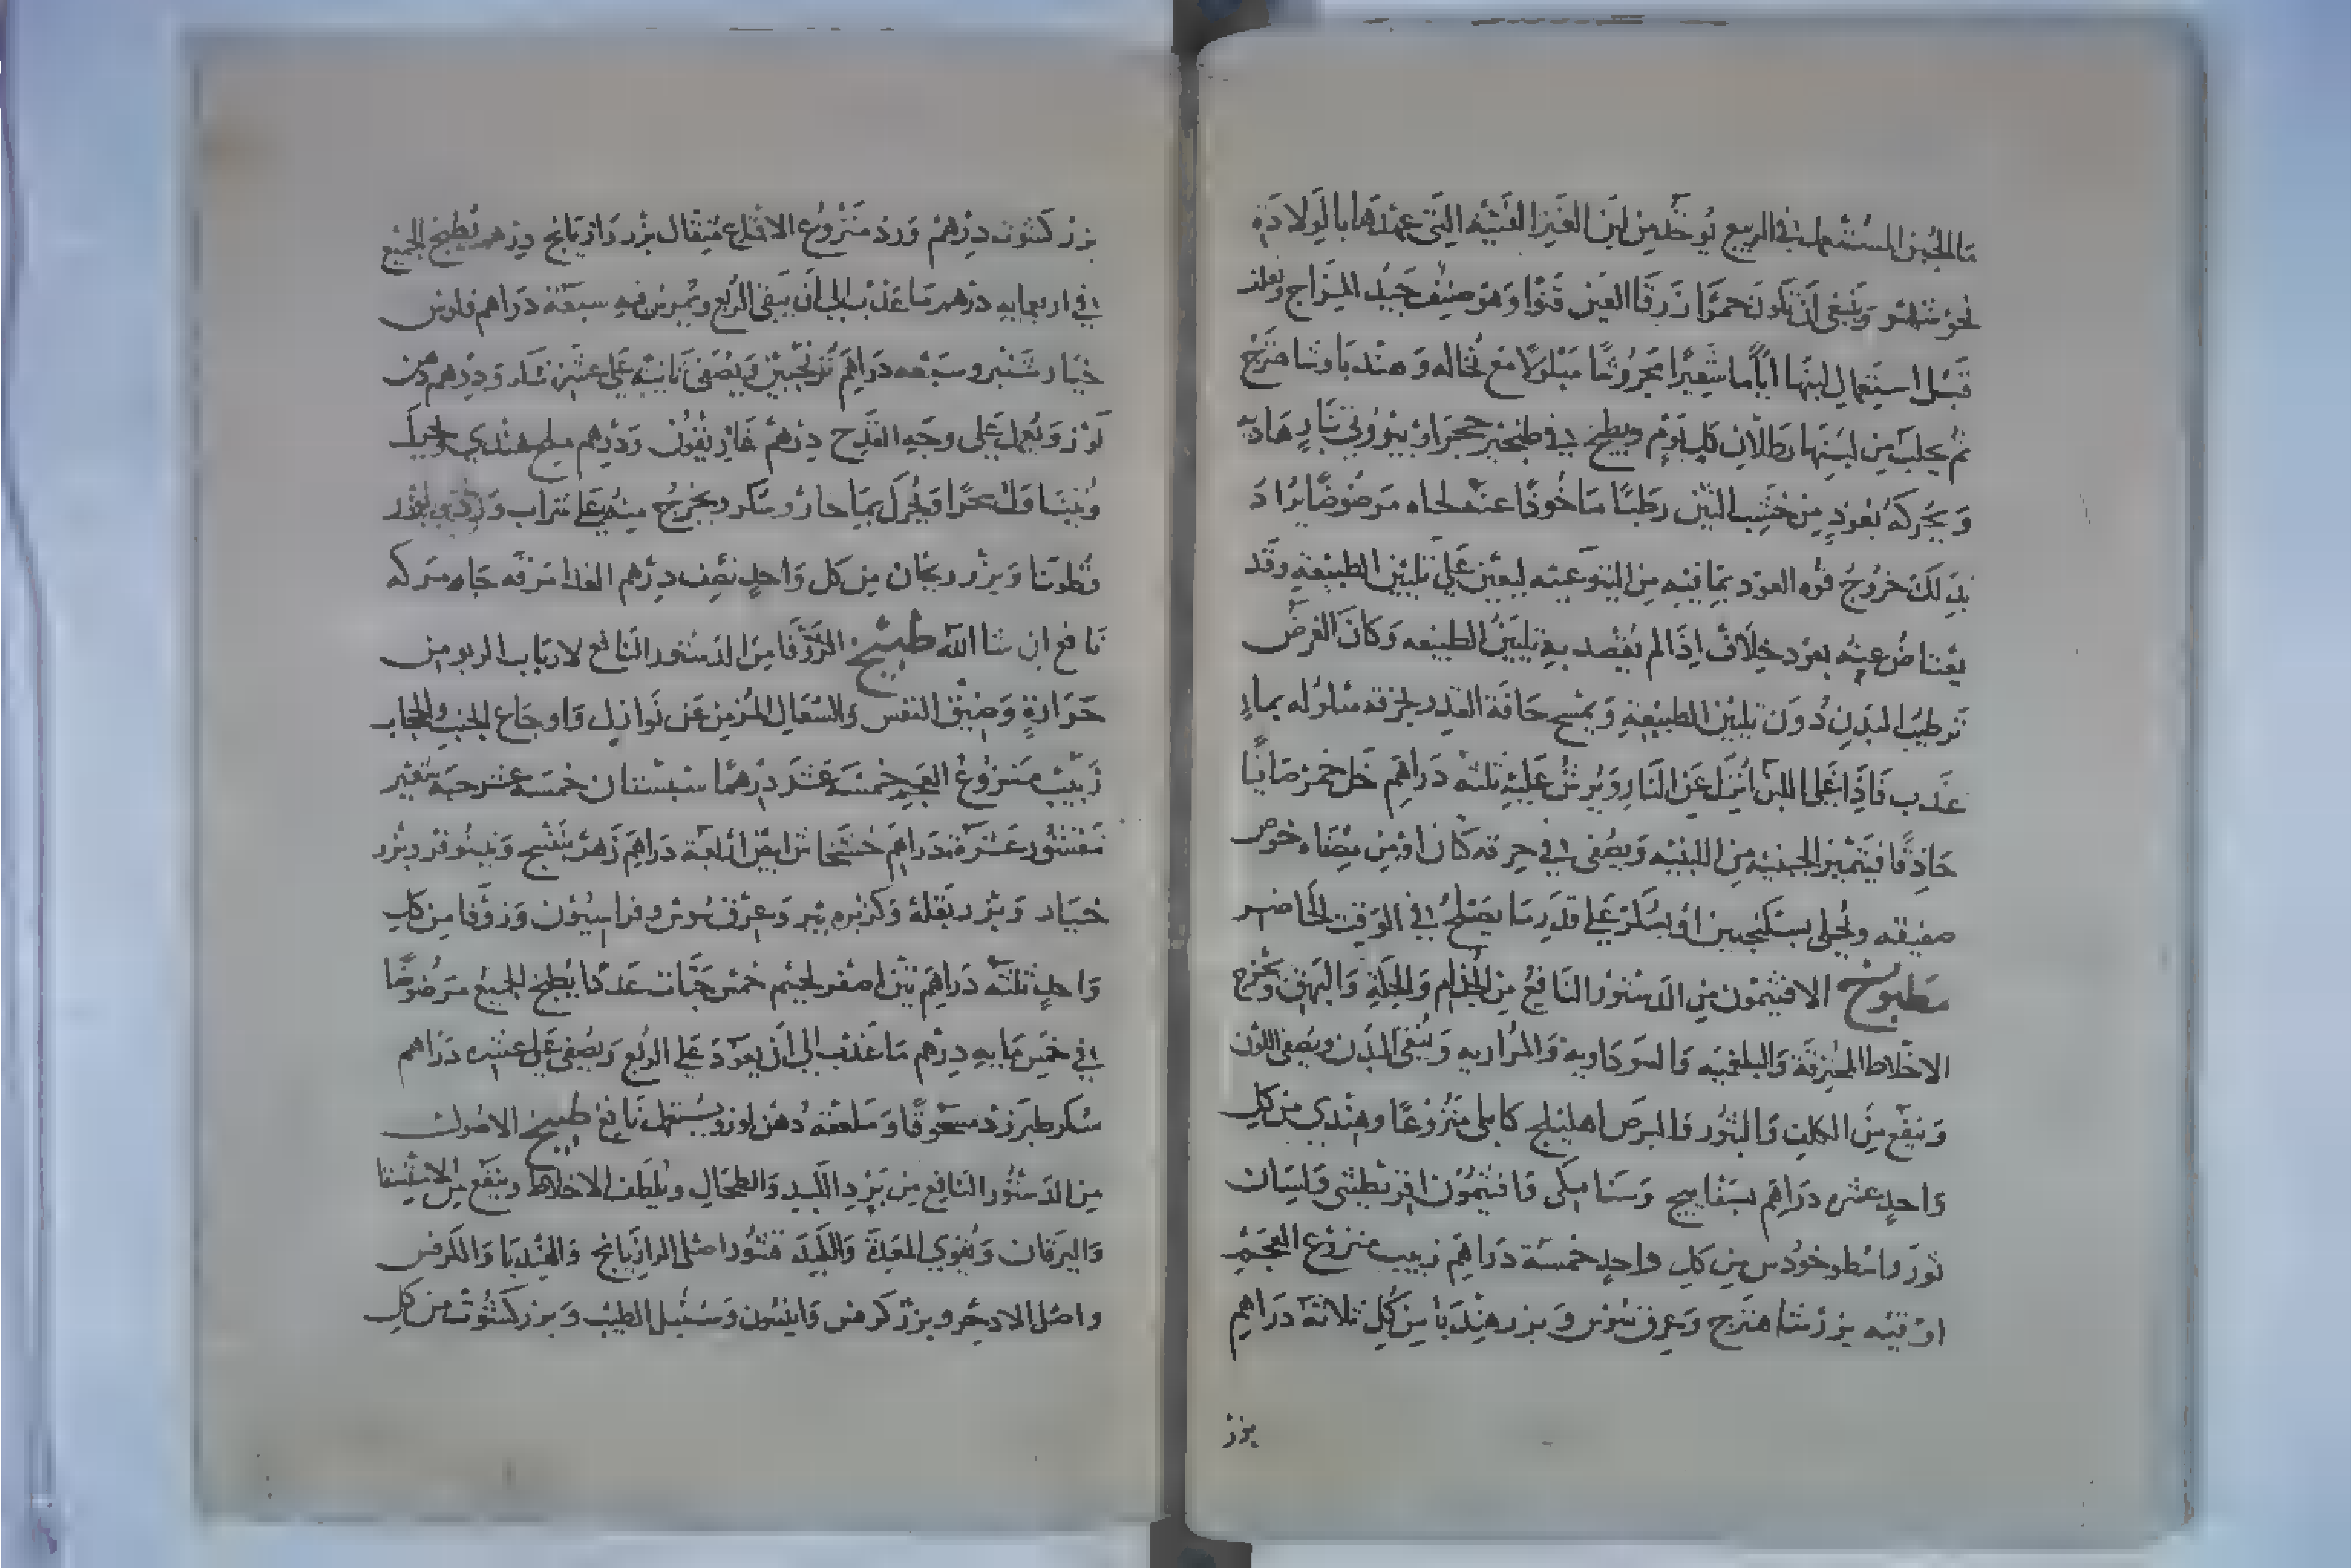 ما الجبن المستعمل في الربيع يوخذ من لبن العنز الفتيه التي عهدها بالولادة
نحو شهر وينبغي ان تكون حمرا زرقا العين قنوا وهو صنف جيد المزاج وتعلف
قبل استعمال لبنها اياما شعيرا مجروشا مبلولا مع نخاله وهندبا وشاهترج
ثم يحلب من لبنها رطلان كل يوم ويطبخ في طنجير حجر او بنار هاديه
ويحركه بعود من خشب التين رطبا ماخوذا عنه لحاه مرضوضا يراد
بذلك خروج قوه العود بما فيه من اليتوعيه ليعين على تليين الطبيعة وقد
يعتاض عنه بعود خلاف اذا لم يقصد به تليين الطبيعه وكان الغرض
ترطيب البدن دون تليين الطبيعة ويمسح حافة القدر بخرقه مبلوله بماء
عذب فاذا غلى اللبن انزل عن النار ويرش عليه ثلثه دراهم خل خمر صافيا
حاذقا فيتميز الجبنيه من اللبنيه ويصفى في خرقه كتان او من مصفاه خوص
صفيقه ويحلى بسكنجبين او بسكر على قدر ما يصلح في الوقت الحاضر
مطبوخ الافتيمون من الدستور النافع من الجذام والحكة والبهق ويخرج
الاخلاط المحترقة والبلغميه والسوداويه والمراريه وينقى البدن ويصفى اللون
وينفع من الكلف والبثور والبرص اهليلج كابلى منزوعا وهندي من كل
واحد عشره دراهم بسفايج وسنا مكى وافتيمون اقريطشى ولسان
ثور واسطوخودس من كل واحد خمسة دراهم زبيب منزوع العجم
اوقيه بزر شاهترج وعرق سوس وبزر هندبا من كل ثلاثة دراهم
بزر
بزر كشوت درهم ورد منزوع الاقماع مثقال بزر رازيانج درهم يطبخ الجميع
في اربعمايه درهم ما عذب الى ان يبقى الربع ويمرس فيه سبعة دراهم فلوس
خيار شنبر وسبعه دراهم ترنجبين ويصفى ثانية على عشرين سكر ودرهم دهن
لوز ويعمل على وجه القدح درهم غاريقون ودرهم ملح هندي
سحرا ويحرك بما حار وسكر ويخرج منه على شراب وبزر
قطونا وبزر ريحان من كل واحد نصف درهم الغدا مرقه
نافع ان شا الله طبيخ الزوفا من الدستور النافع لارباب الربو من
حرارة وضيق النفس والسعال المزمن عن نوازل واوجاع الجنب والحجاب
زبيب منزوع العجم خمسة عشر درهما سبستان خمسه عشر حبه شعير
مقشور عشرة دراهم خشخاش ابيض اربعة دراهم زهر بنفسج ونينوفر وبزر
خيار وبزر بقلة وكزبره بير وعرق سوس وفراسيون وزوفا من كل
واحد ثلثه دراهم تين اصفر لحيم خمس حبات عددا يطبخ الجميع مرضوضا
في خمس مايه درهم ما عذب الى ان يعود على الربع ويصفى على عشره دراهم
سكر طبرزد مسحوقا وملعقه دهن لوز ويستعمل نافع طبيخ الاصول
من الدستور النافع من برد الكبد والطحال ويلطف الاخلاط وينفع من الاستسقا
واليرقان ويقوي المعدة والكبد قشور اصل الرازيانج والهندبا والكرفس
واصل الادخر وبزر كرفس وانيسون وسنبل الطيب وبزر كشوث من كل